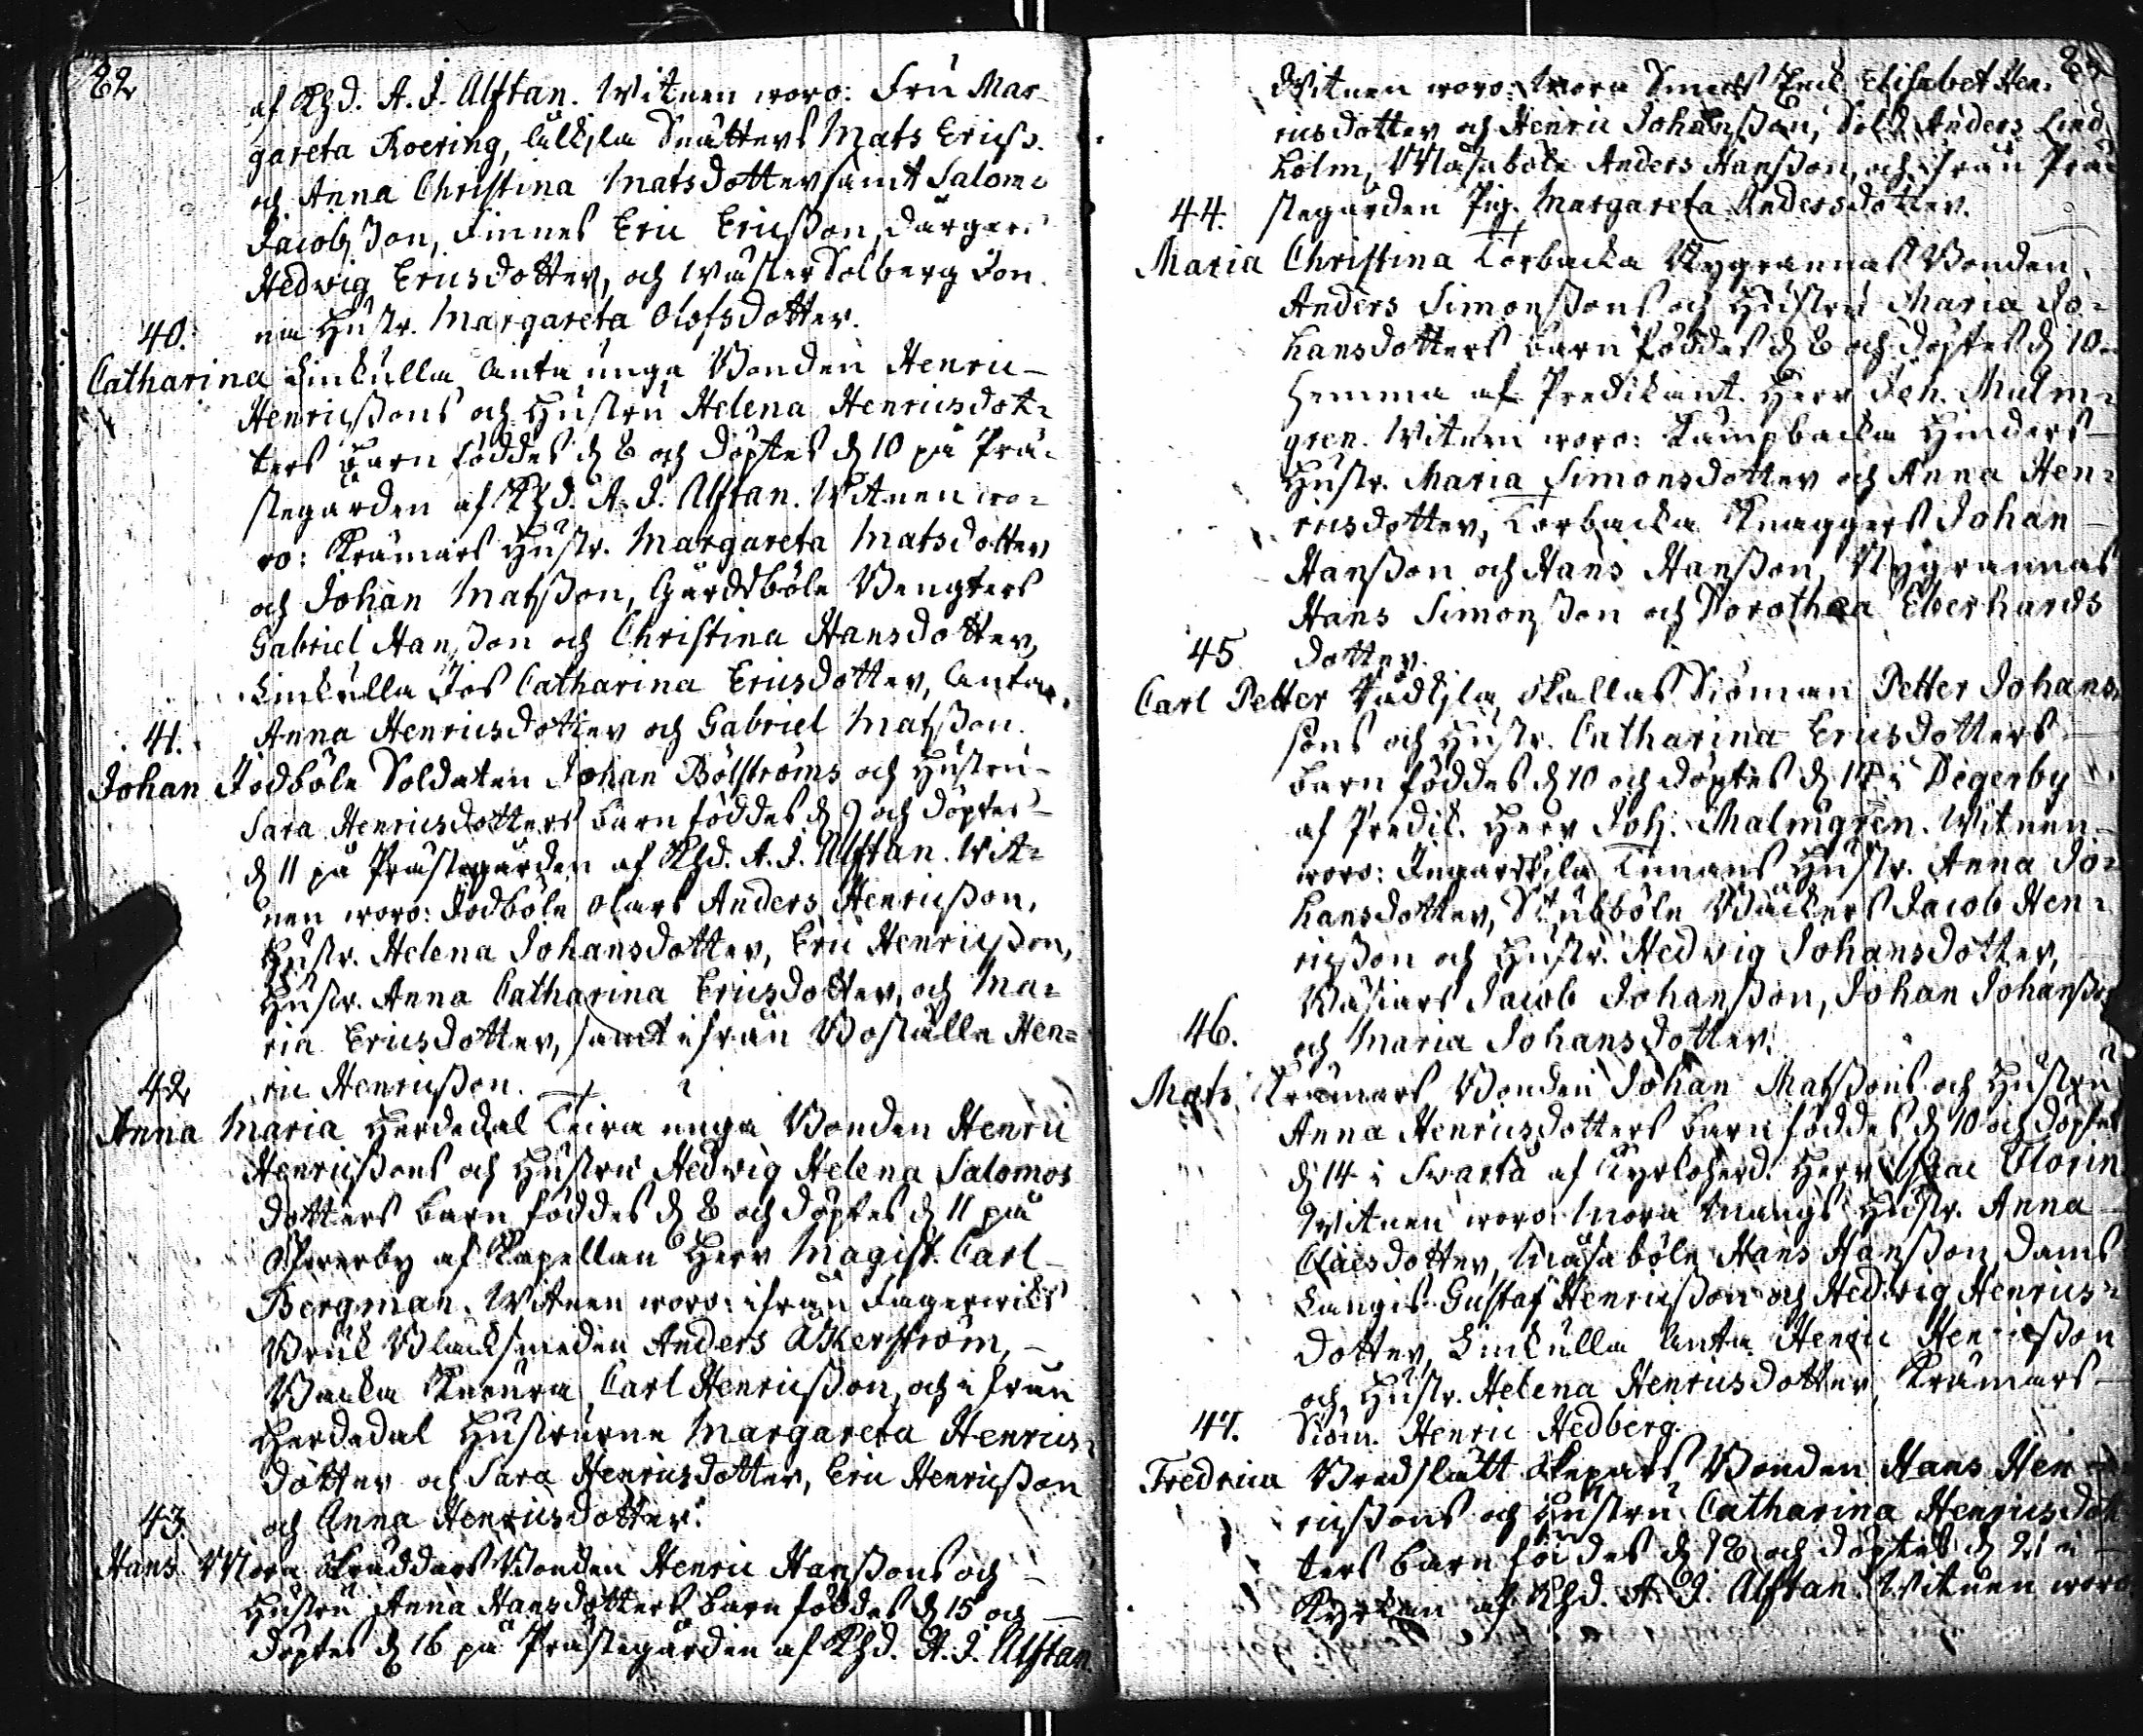 82
af Khd. A. J. Alftan. Witnen woro: Fru Mar-
gareta Roering, Kälkila Snätters Mats Erics.
och Anna Christina Matsdotter samt Salom:
Jacobsson, Finnes Eric Ericsson,
Hedwig Ericsdotter, och Wäster Solberg
Hustr. Margareta Olofsdotter.
40.
Catharina Linkulla Anta unga Bonden Henric
Henricssons och Hustru Helena Henricsdot-
ters barn föddes d. 8 och döptes d. 10 på Prä-
stegården af Khd. A. J. Alftan. Witnen wo-
ro: Krämars Hustr. Margareta Matsdotter
och Johan Matsson, Gårdsböle Bengters
Gabriel Hansson och Christina Hansdotter,
Linkulla Jos Catharina Ericsdotter, Anta
Anna Henricsdotter och Gabriel Matsson.
41.
Johan Jodböle Soldaten Johan Bölströms och Hustru
Sara Henricsdotters barn föddes d. 9 och döptes
d. 11 på Prästegården af Khd. A. J. Alftan. Wit-
nen woro: Jodböle Olars Anders Henricsson,
Hustr. Helena Johansdotter, Eric Henricsson,
Hustr. Anna Catharina Ericsdotter, och Ma-
ria Ericsdotter, samt ifrån Boställe Hen-
ric Henricsson.
42
Anna Maria Herdedal Teira unga Bonden Henric
Henricssons och Hustru Hedwig Helena Salomos
dotters barn föddes d. 8 och döptes d. 11 på
af Kapellan Herr Magist. Carl
Bergman. Witnen woro: ifrån Fagerwiks
Bruk Blacksmeden Anders Åkerström,
Backa Knoura Carl Henricsson, och ifrån
Herdedal Hustrurne Margareta Henrics-
dotter och Sara Henricsdotter, Eric Henricsson
och Anna Henricsdotter.
43.
Hans Mora Skräddars Bonden Henric Hanssons och
Hustru Anna Hansdotters barn föddes d. 15 och
döptes d. 16 på Prästegården af Khd. A. J. Alftan
Witnen woro: Mora Smeds Enk. Elisabet Hen-
ricsdotter och Henric Johansson, Sold. Anders Lind
holm, Måsaböle Anders Hansson, och ifrån Prä-
stegården Pig. Margareta Andersdotter.
44.
Maria Christina Torbacka Nygrannas Bonden
Anders Simonssons och Hustru Maria Jo-
hansdotters barn föddes d. 8 och döptes d. 10
hemma af Predikant. Herr Joh. Malm-
gren. Witnen woro: Kämpbacka Hinders
Hustr. Maria Simonsdotter och Anna Hen-
ricsdotter, Torbacka Knaggers Johan
Hansson och Hans Hansson, Nygrannas
Hans Simonsson och Dorothea Eberhards
dotter.
45
Carl Petter Wädkila Skallas Siöman Petter Johans-
sons och Hustr. Catharina Ericsdotters
barn föddes d. 10 och döptes d. 17 i Degerby
af Predik. Herr Joh. Malmgren. Witnen
woro: Ingarskila Timans Hustr. Anna Jo-
hansdotter, Stubböle Bäckers Jacob Hen-
ricsson och Hustr. Hedwig Johansdotter,
Wästars Jacob Johansson, Johan Johansson
och Maria Johansdotter.
46.
Mats Krämars Bonden Johan Matssons och Hustru
Anna Henricsdotters barn föddes d. 10 och döptes
d. 14 i Swartå af Kyrkoherd. Herr Isaac Florin
Witnen woro: Mora Mangs Hustr. Anna
Claesdotter, Måsaböle Hans Hansson, Dams
Langis Gustaf Henricsson och Hedwig Henrics-
dotter, Linkulla Anta Henric Henricsson
och Hustr. Helena Henricsdotter, Krämars
Siöm. Henric Hedberg.
47.
Fredrica Bredslätt Skepars Bonden Hans Hen-
ricssons och Hustru Catharina Henricsdot-
ters barn föddes d. 18 och döptes d. 21 i
Kyrkan af Khd. A. J. Alftan. Witnen woro